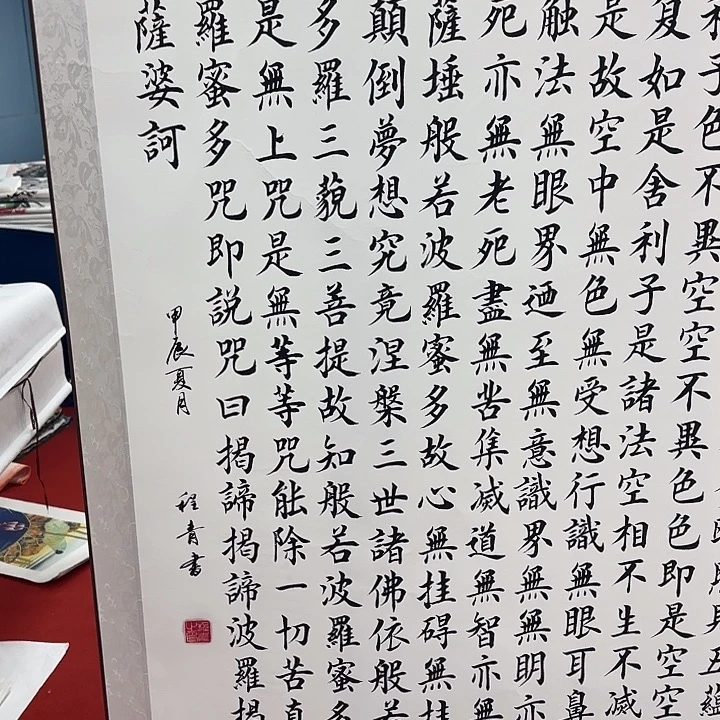 照見五蘊
利子色不異空空不異色色即是空空
复如是舍利子是諸法空相不生不滅
是故空中無色無受想行識無眼耳鼻
触法無眼界迺至無意識界無無明亦
死亦無老死盡無苦集滅道無智亦無
薩埵般若波羅蜜多故心無挂碍無挂
顛倒夢想究竟涅槃三世諸佛依般若
多羅三藐三菩提故知般若波羅蜜多
是無上咒是無等等咒能除一切苦真
羅蜜多咒即說咒曰揭諦揭諦波羅揭
薩婆訶
甲辰夏月
程青書